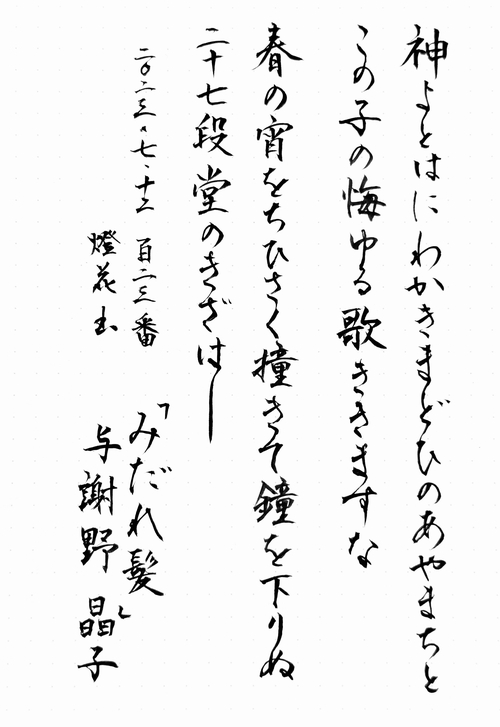 神よとはにわかきまどひのあやまちと
この子の悔ゆる歌ききますな
春の宵をちひさく撞きて鐘を下りぬ
二十七段堂のきざはし
二〇二三・七・十三 百二三番
燈花
「みだれ髪」
与謝野晶子